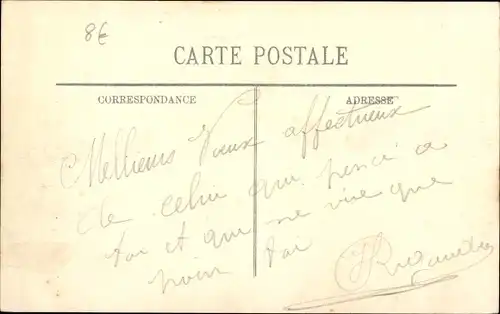 8€
CARTE POSTALE
CORRESPONDANCE
ADRESSE
Mellieurs Vœux affectueux
de celui qui pense a
toi et que ne vive que
pour toi